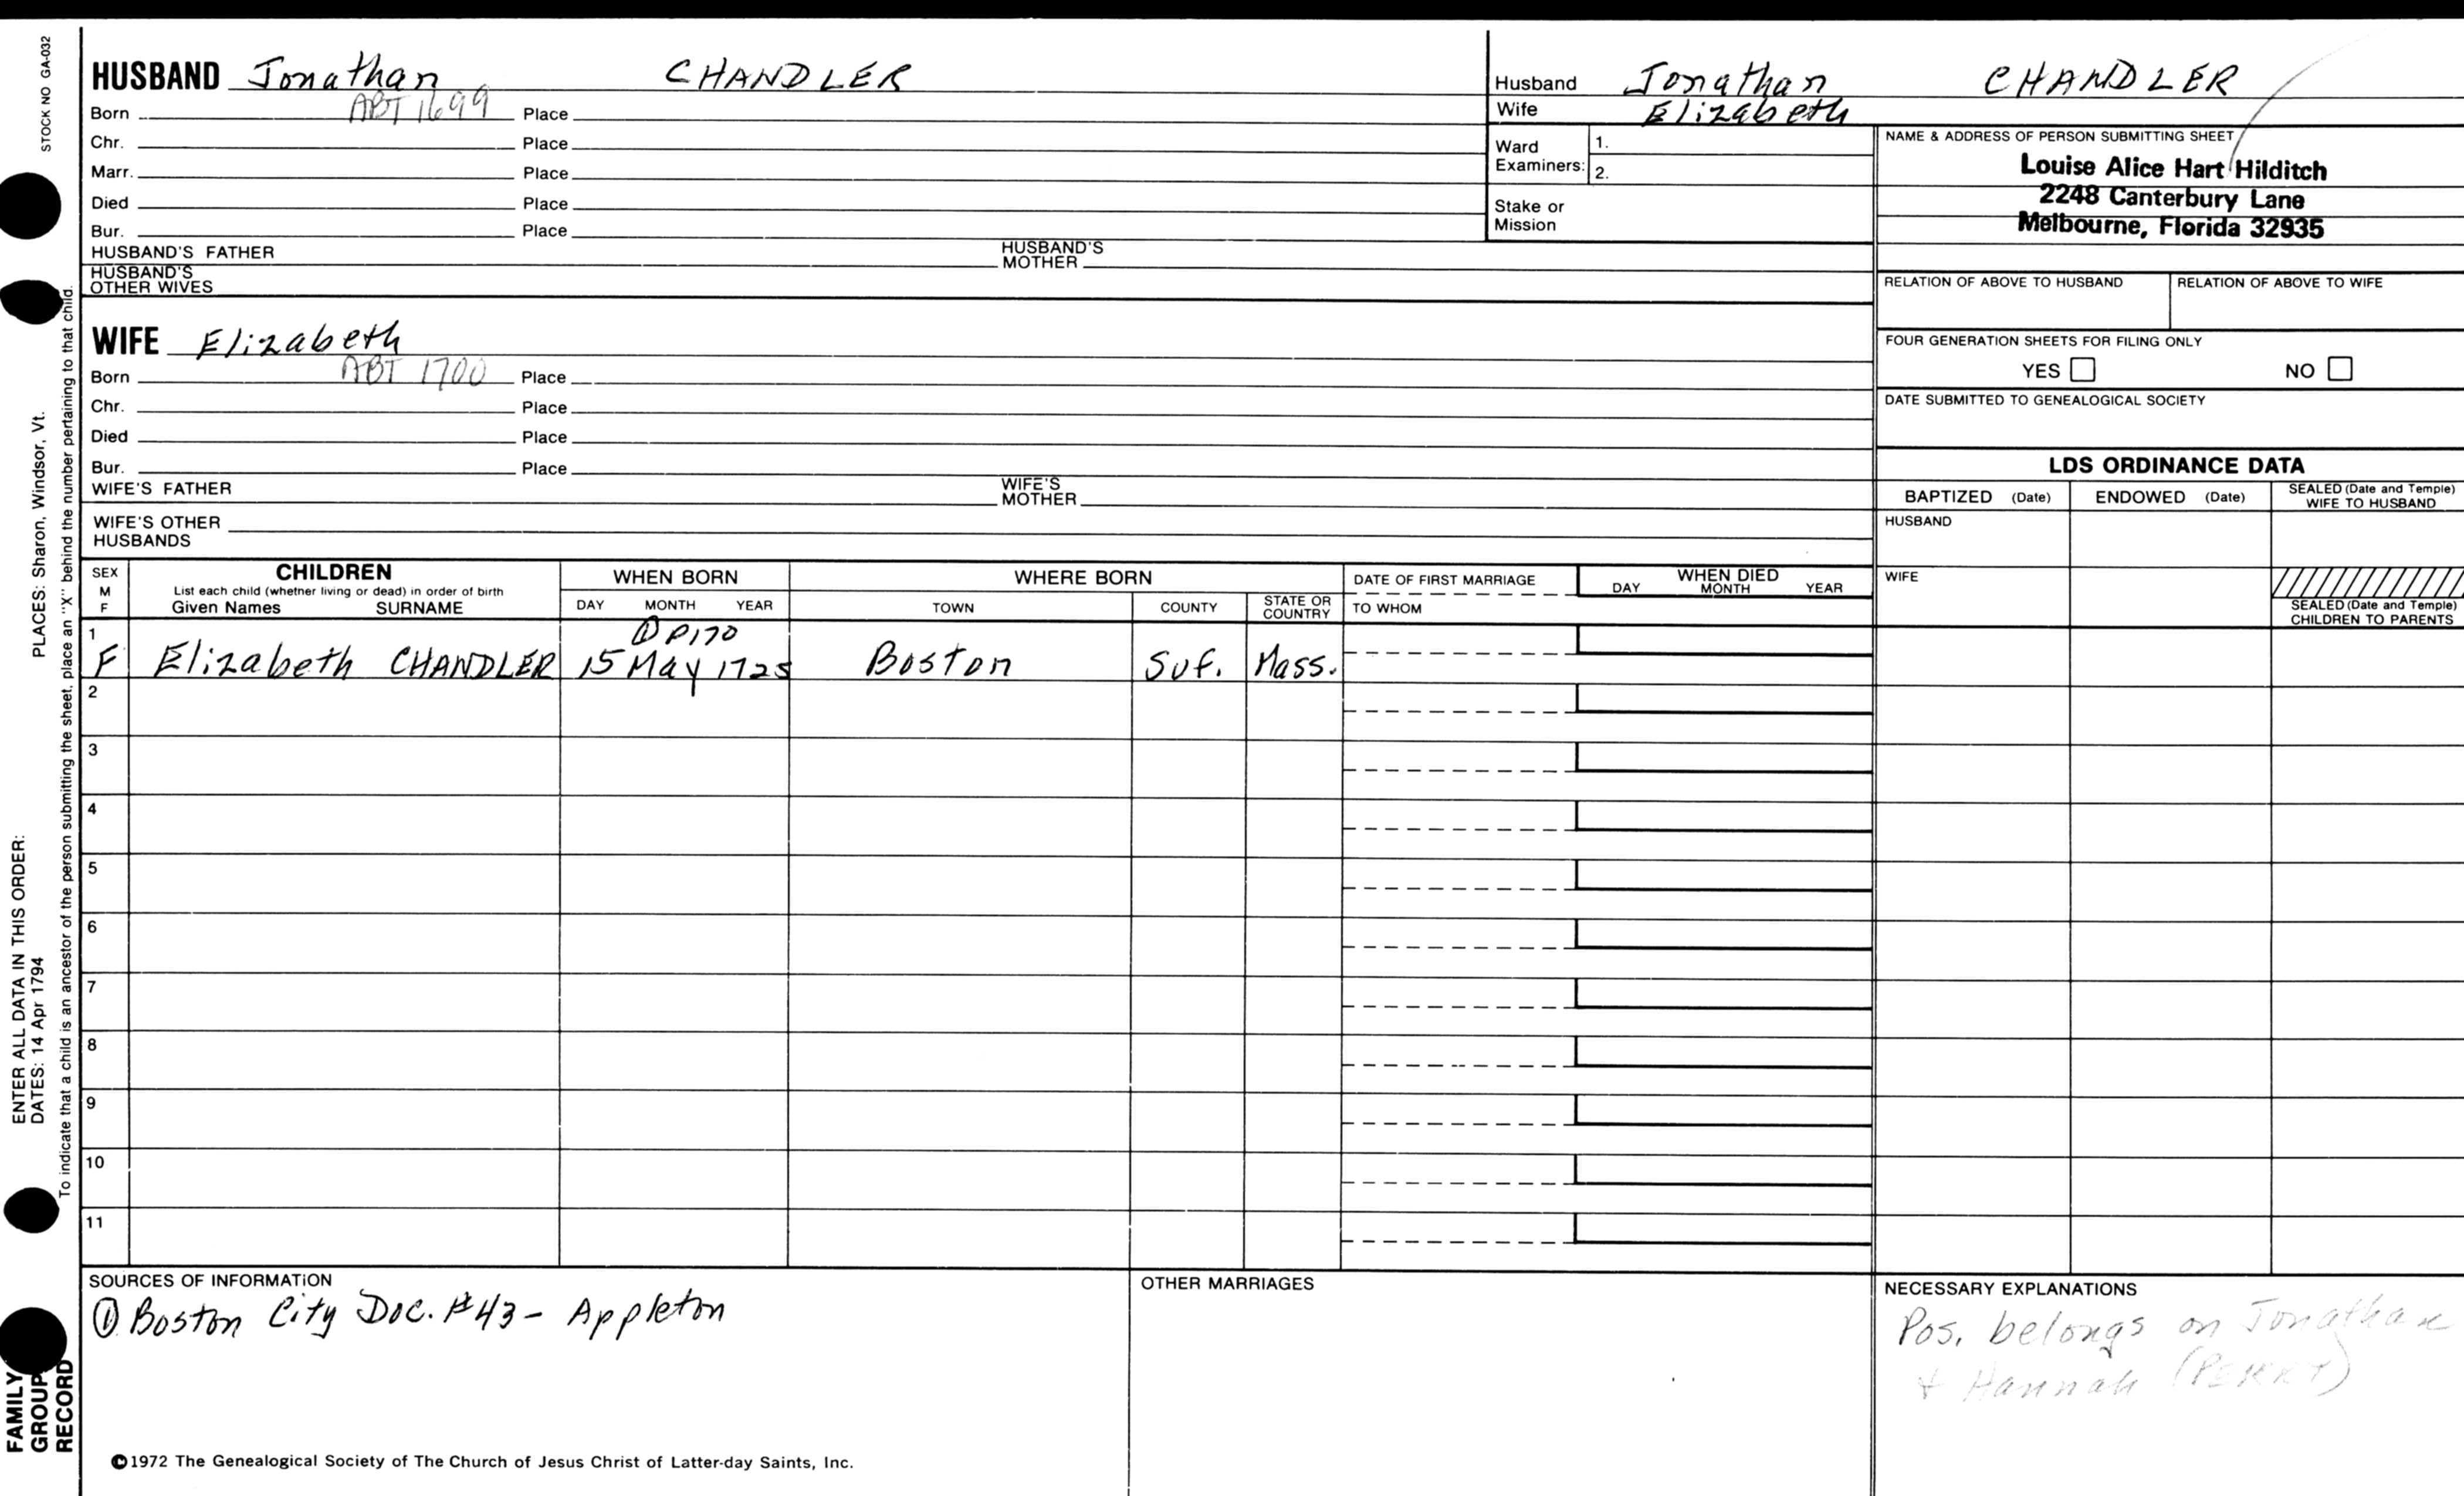 STOCK NO GA-032
PLACES: Sharon, Windsor, Vt.
ENTER ALL DATA IN THIS ORDER:
DATES: 14 Apr 1794
To indicate that a child is an ancestor of the person submitting the sheet, place an "X" behind the number pertaining to that child.
FAMILY
GROUP
RECORD
HUSBAND Jonathan CHANDLER
Born ABT 1699 Place
Chr. Place
Marr. Place
Died Place
Bur. Place
HUSBAND'S FATHER HUSBAND'S MOTHER
HUSBAND'S
OTHER WIVES
WIFE Elizabeth
Born ABT 1700 Place
Chr. Place
Died Place
Bur. Place
WIFE'S FATHER WIFE'S MOTHER
WIFE'S OTHER
HUSBANDS
Husband Jonathan CHANDLER
Wife Elizabeth
Ward
Examiners: 1.
2.
Stake or
Mission
NAME & ADDRESS OF PERSON SUBMITTING SHEET
Louise Alice Hart Hilditch
2248 Canterbury Lane
Melbourne, Florida 32935
RELATION OF ABOVE TO HUSBAND RELATION OF ABOVE TO WIFE
FOUR GENERATION SHEETS FOR FILING ONLY
YES NO
DATE SUBMITTED TO GENEALOGICAL SOCIETY
LDS ORDINANCE DATA
BAPTIZED (Date) ENDOWED (Date) SEALED (Date and Temple) WIFE TO HUSBAND
HUSBAND
WIFE
SEALED (Date and Temple)
CHILDREN TO PARENTS
SEX
M
F
CHILDREN
List each child (whether living or dead) in order of birth
Given Names SURNAME
WHEN BORN
DAY MONTH YEAR
WHERE BORN
TOWN COUNTY STATE OR COUNTRY
DATE OF FIRST MARRIAGE
TO WHOM
WHEN DIED
DAY MONTH YEAR
1 ① P170
F Elizabeth CHANDLER 15 May 1725 Boston Suf. Mass.
2
3
4
5
6
7
8
9
10
11
SOURCES OF INFORMATION
① Boston City Doc. #43 - Appleton
OTHER MARRIAGES
NECESSARY EXPLANATIONS
Pos. belongs on Jonathan
+ Hannah (PERRY)
©1972 The Genealogical Society of The Church of Jesus Christ of Latter-day Saints, Inc.